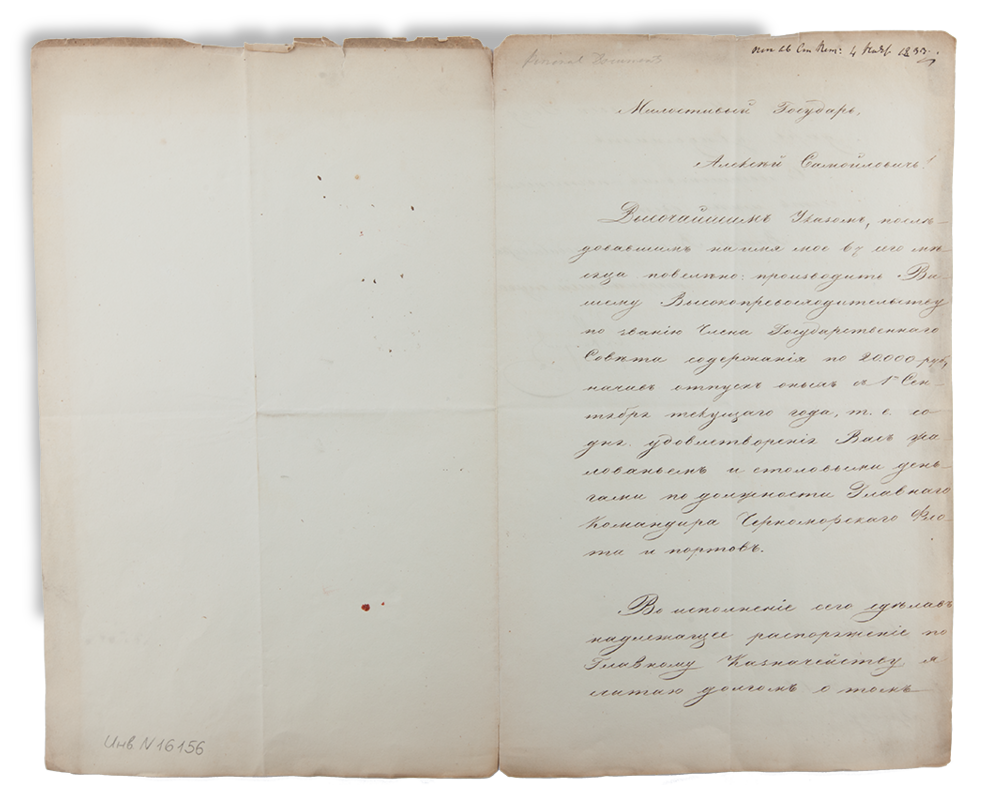 4 Нояб. 1833.
Милостивый Государь,
Алексѣй Самойловичь!
Высочайшимъ Указомъ, послѣ-
довавшимъ на имя мое въ 7 сего мѣ-
сяца повелѣно: производить Ва-
шему Высокопревосходительству
по званію Члена Государственнаго
Совѣта содержанія по 20.000 руб.,
начавъ отпускъ онымъ съ 1го Сен-
тября текущаго года, т. е. со
дня удовлетворенія Васъ жа-
лованьемъ и столовыми день-
гами по должности Главнаго
Командира Черноморскаго Фло-
та и портовъ.
Во исполненіе сего сдѣлавъ
надлежащее распоряженіе по
Главному Казначейству я
считаю долгомъ о томъ
Инв N 16156